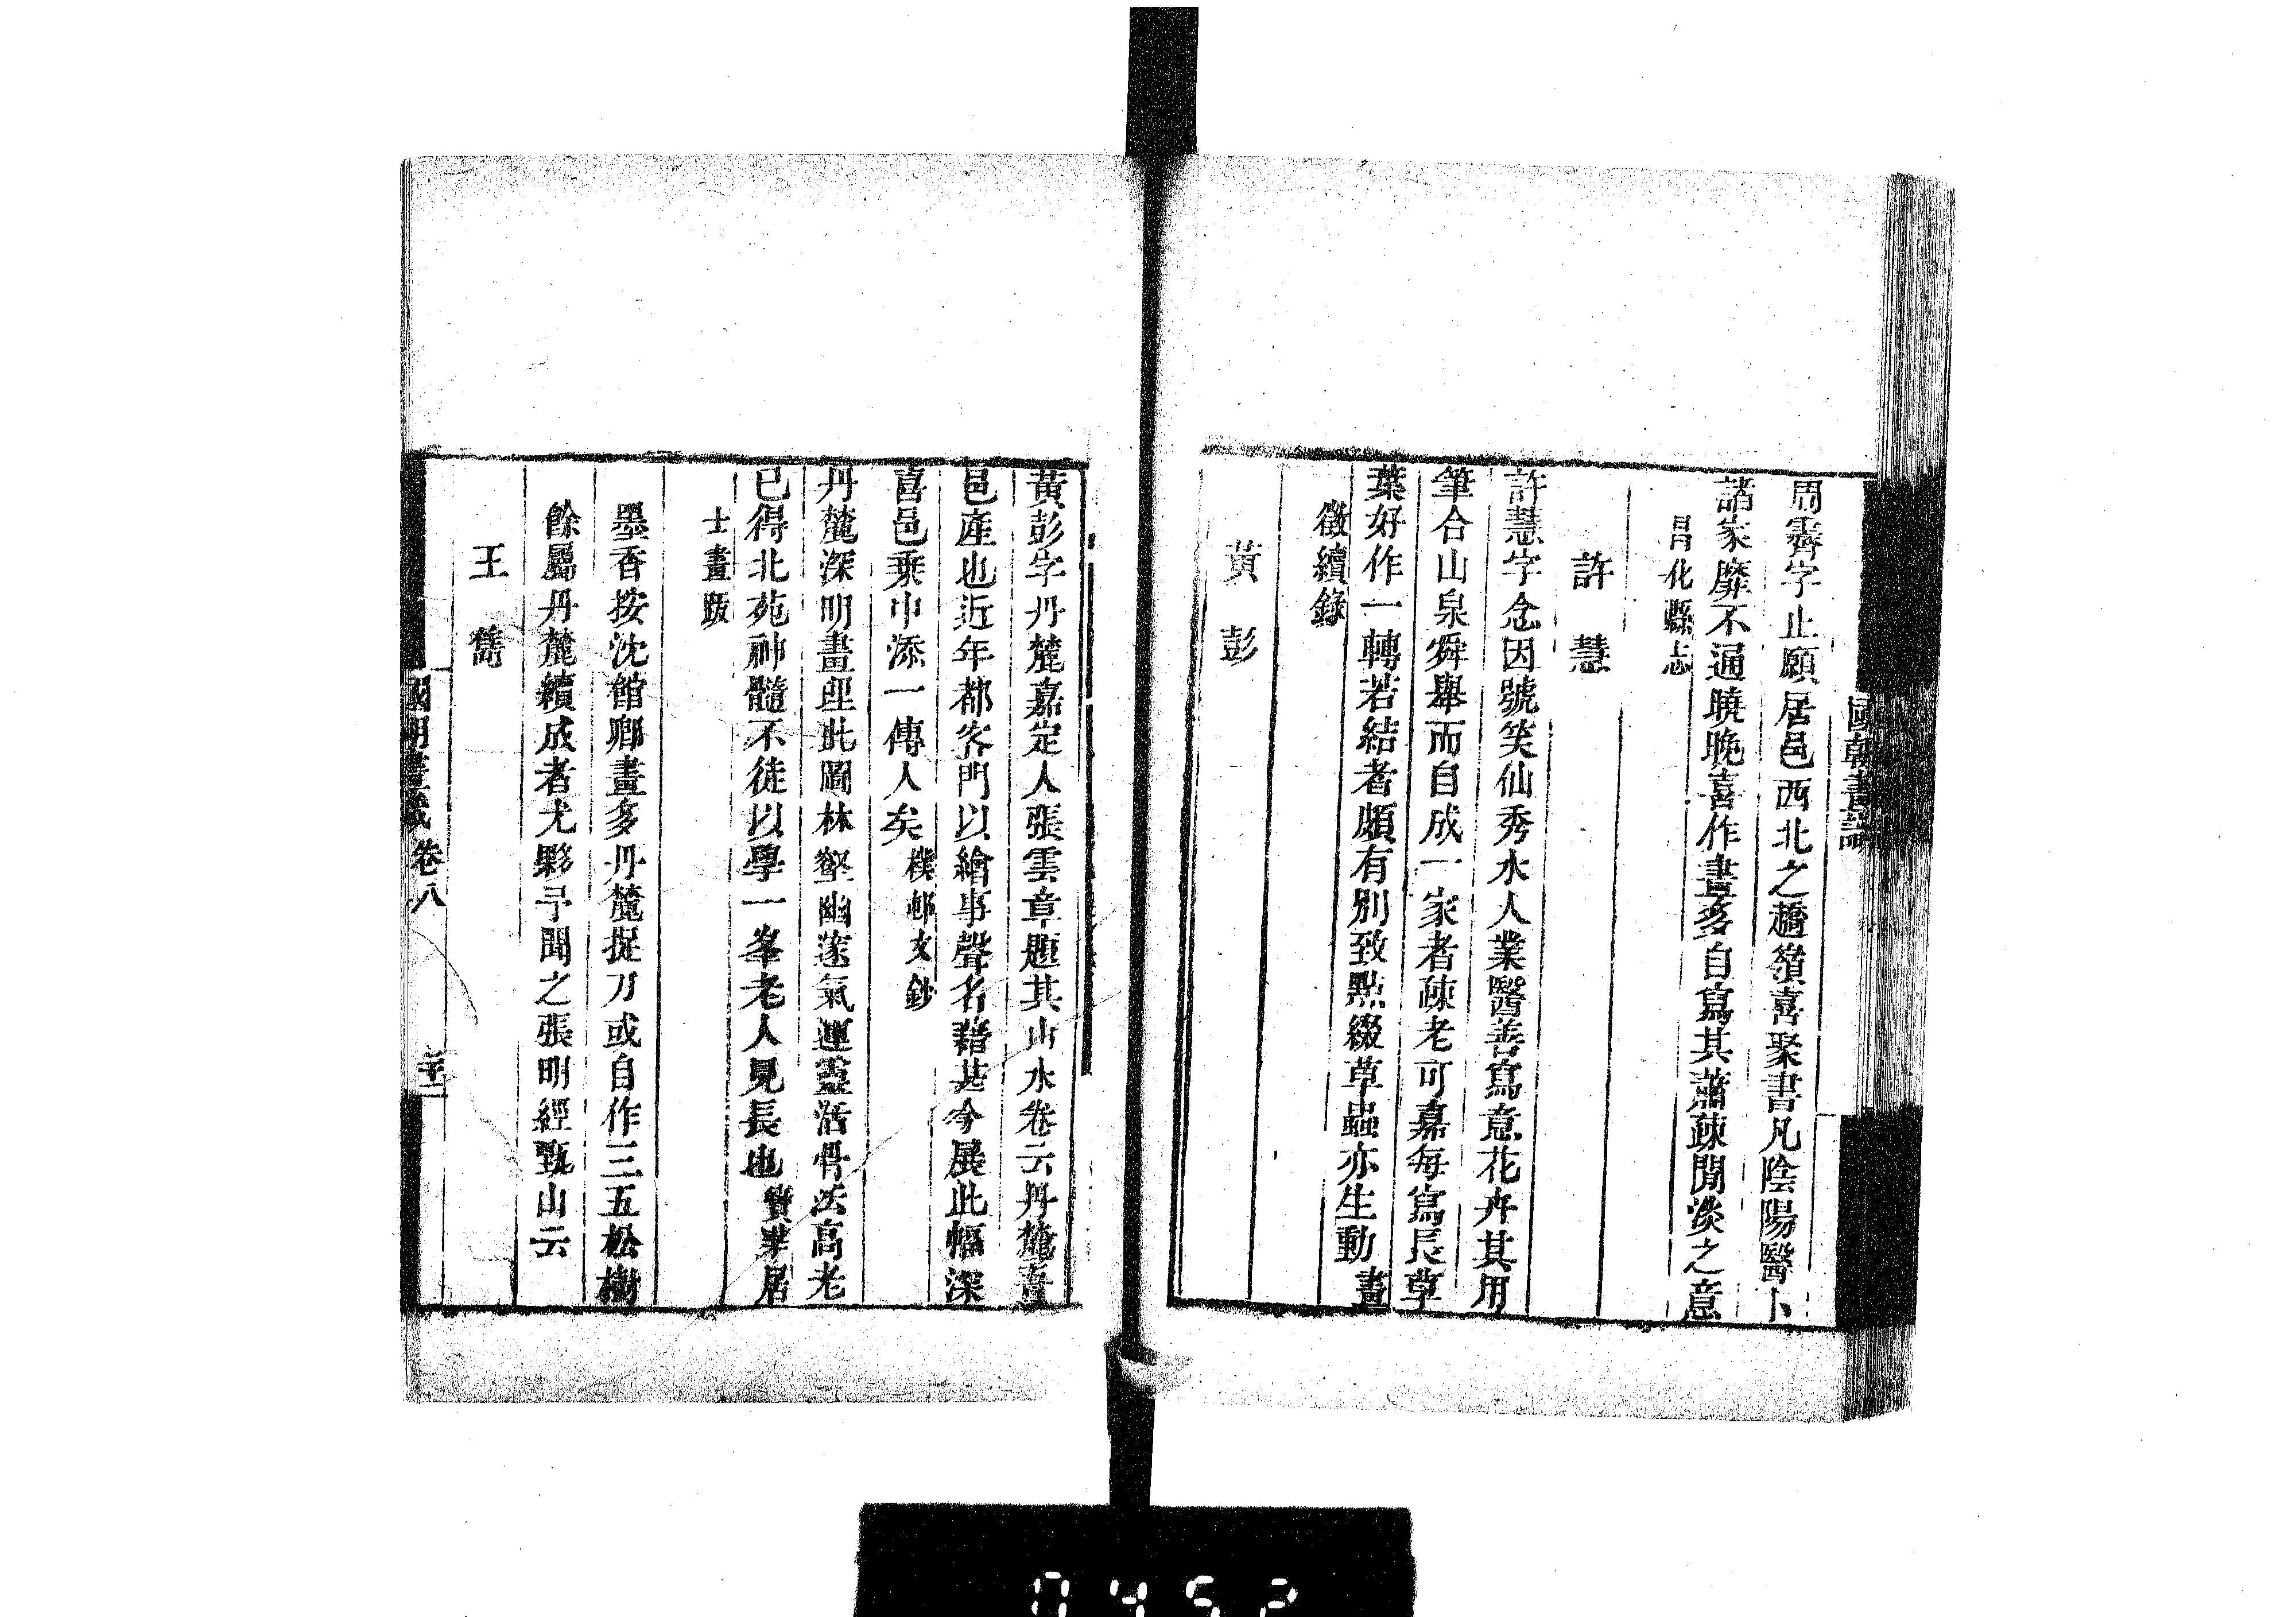 國朝畫識
周霽字止願居邑西北之趫嶺喜聚書凡陰陽醫卜
諸家靡不通曉晚喜作畫多自寫其蕭疎閒淡之意
昌化縣志
許慧
許慧字念因號笑仙秀水人業醫善寫意花卉其用
筆合山泉舜舉而自成一家者疎老可嘉每寫長草
葉好作一轉若結者頗有別致點綴草蟲亦生動畫
徵續錄
黃彭
黃彭字丹麓嘉定人張雲章題其山水卷云丹麓吾
邑產也近年都客門以繪事聲名藉甚今展此幅深
喜邑乘中添一傳人矣樸邨文鈔
丹麓深明畫理此圖林壑幽邃氣運靈活骨法高老
已得北苑神髓不徒以學一峯老人見長也寶菜居
士畫跋
墨香按沈館卿畫多丹麓捉刀或自作三五松樹
餘屬丹麓續成者尤夥予聞之張明經甄山云
王雋
國朝畫識 卷八